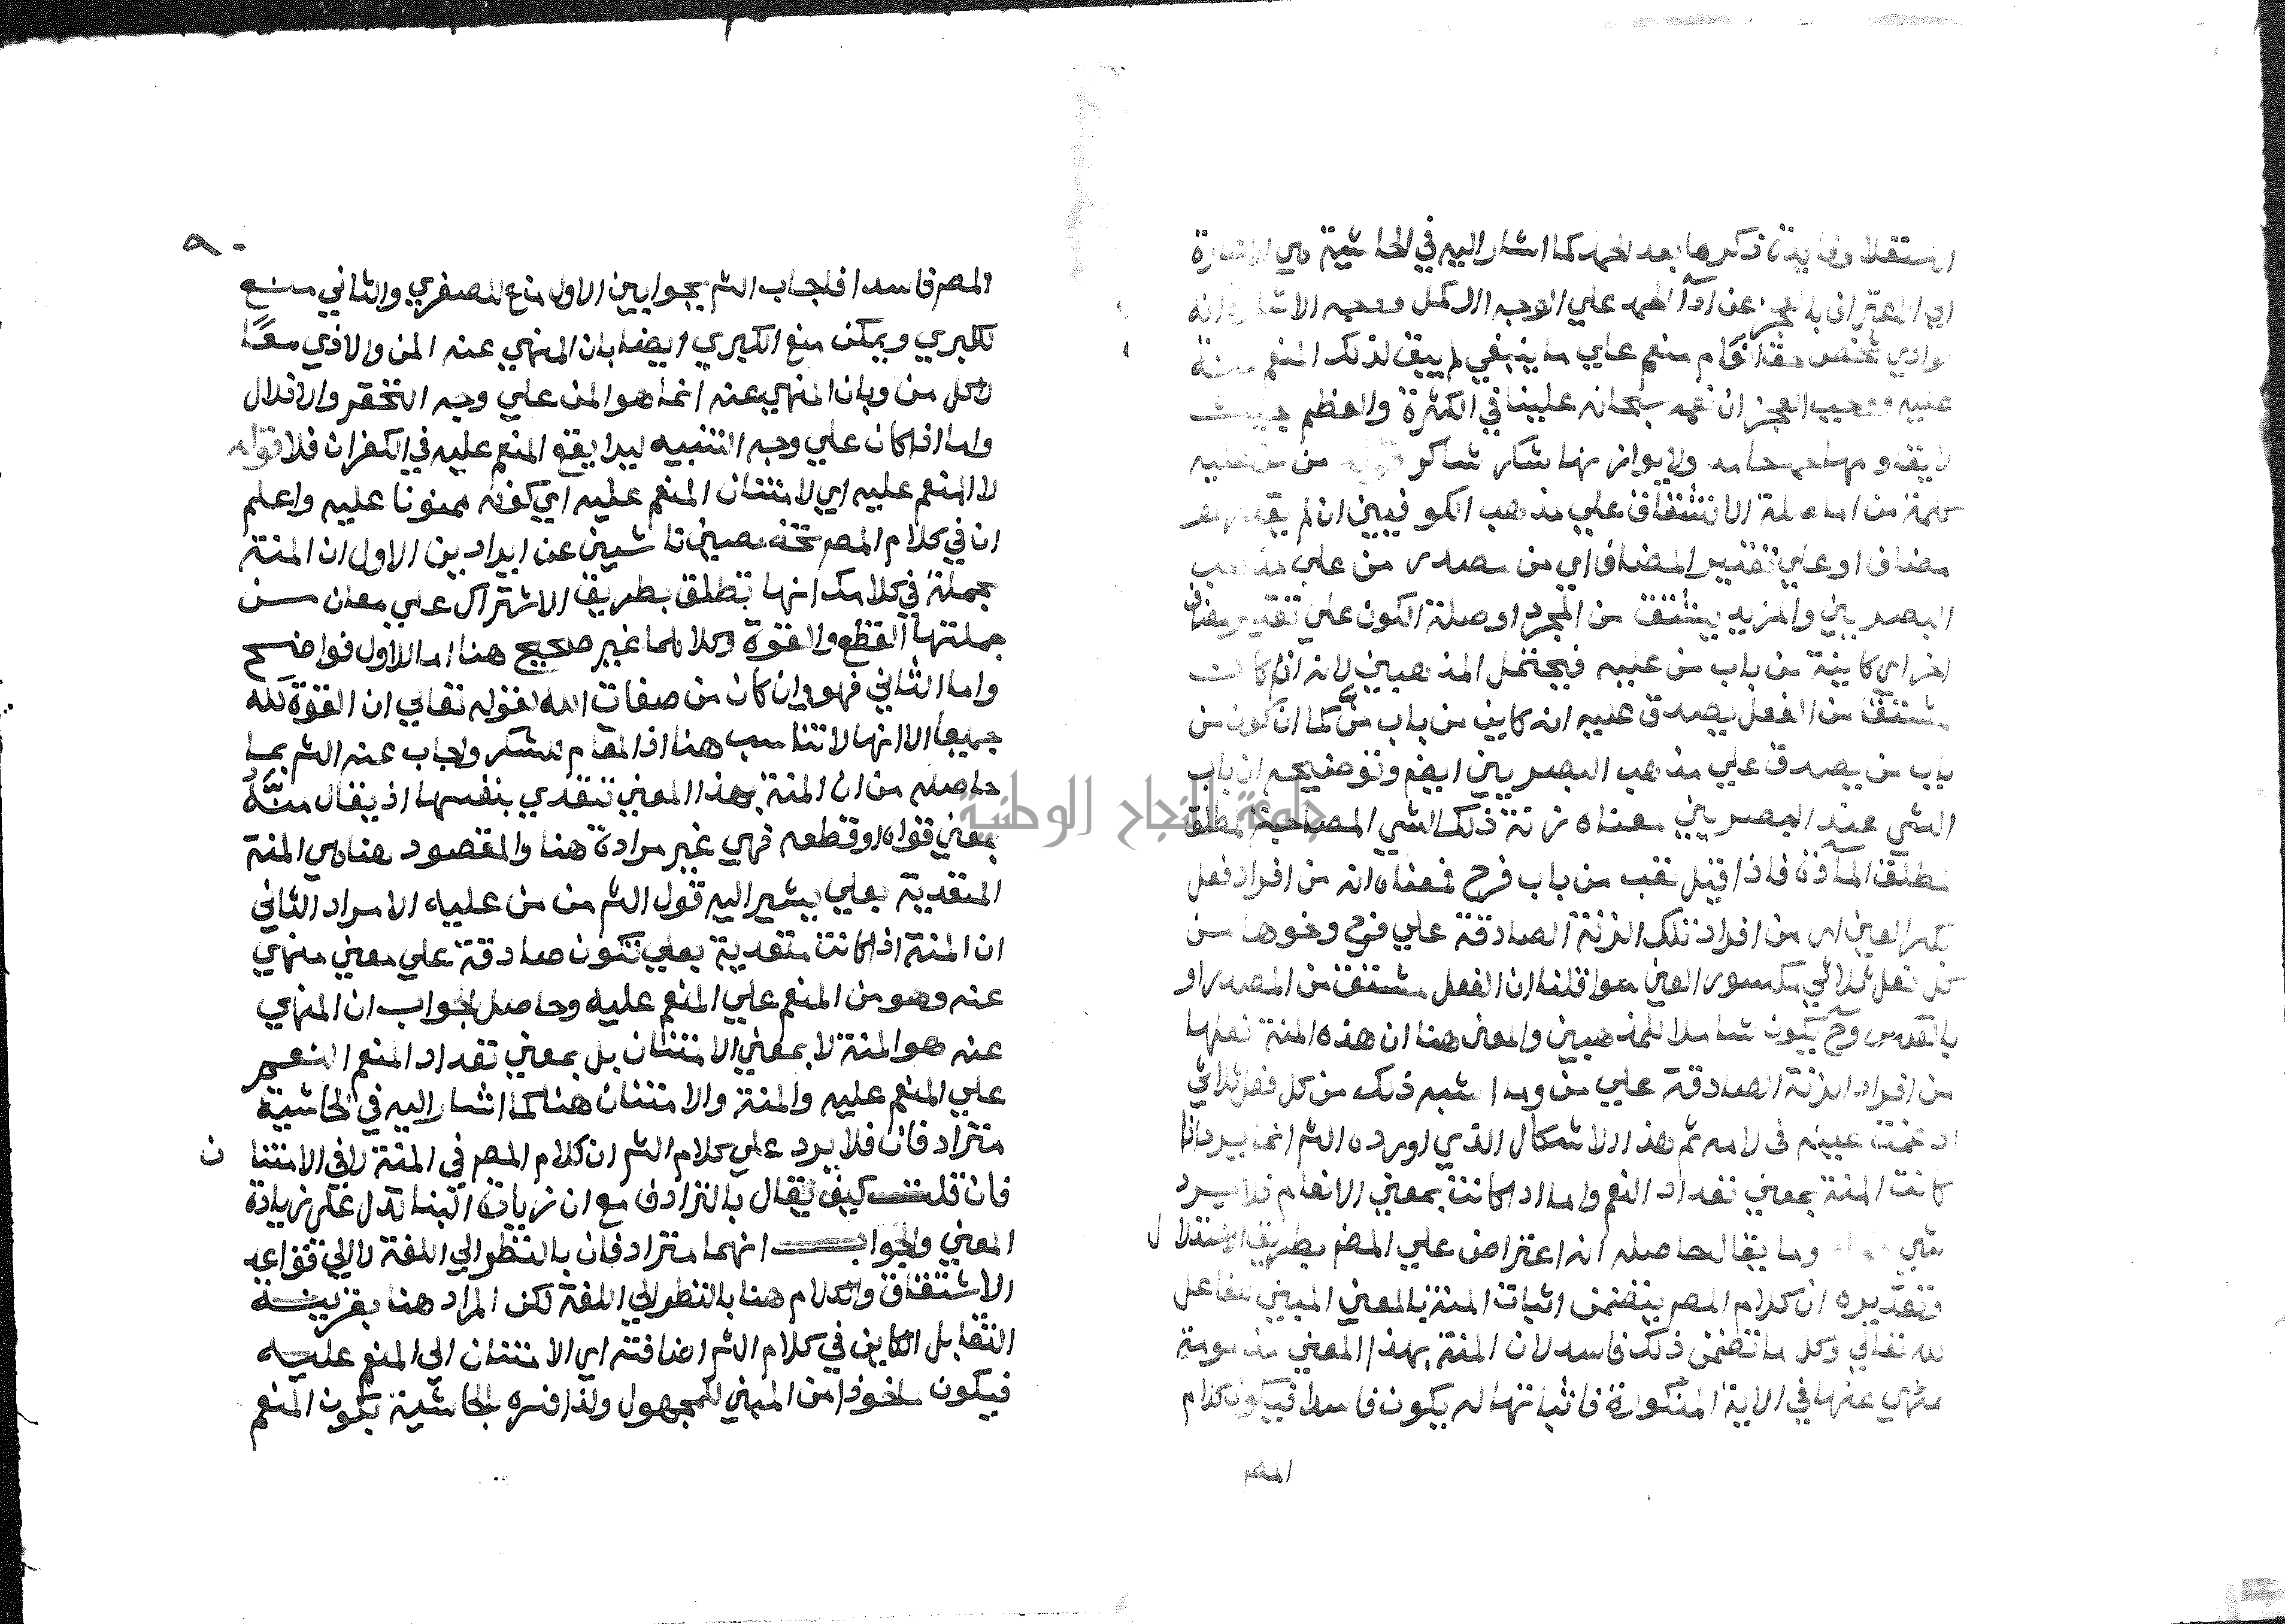 وفايدة ذكرها بعد الحمد كما اشار اليه في الحاشية هي الاشارة
عن ادآ الحمد علي الوجه الاكمل ووجه الاشارة انه
مقام منعم علي ما ينبغي لم يبق لذلك المنعم منة
عليه العجز ان نعمه سبحانه علينا في الكثرة والعظم
حامد ولا يوازنها شكر شاكر قوله من من عليه
كلمة من اما صلة الاشتقاق علي مذهب الكوفيين ان لم يقدر
مضاف او علي تقدير المضاف اي من مصدر من علي مذهب
البصريين والمزيد يشتق من المجرد او صلة الكون علي تقدير مضاف
اخر اي كاينة من باب من عليه فيحتمل المذهبين لانه ان كانت
مشتقة من الفعل يصدق عليه انه كاين من باب منَّ كما ان كون من
باب من يصدق علي مذهب البصريين ايضا وتوضيحه ان باب
الشي عند البصريين معناه زنة ذلك الشي المصاحبة لمطلق
مطلق المآدة فاذا قيل نقب من باب فرح فمعناه انه من افراد فعل
بكسر العين اي من افراد تلك الزنة الصادقة علي فرح ونحوها من
كل فعل ثلاثي مكسور العين سوا قلنا ان الفعل مشتق من المصدر او
بالعكس وح يكون شاملا للمذهبين والمعني هنا ان هذه المنة فعلها
من افراد الزنة الصادقة علي من وما اشبه ذلك من كل فعل ثلاثي
ادغمت عينه في لامه ثم هذا الاشكال الذي اورده الشم انما يرد اذا
كانت المنة بمعني تعداد النعم واما اذا كانت بمعني الانعام فلا يرد
شي قوله وما يقال حاصله انه اعتراض علي المصر بطريق الاستدلال
وتقديره ان كلام المصر يتضمن اثبات المنة بالمعني المبني للفاعل
لله تعالي وكل ما تضمن ذلك فاسد لان المنة بهذا المعني مذمومة
منهي عنها في الاية المذكورة فاثباتها له يكون فاسدا فيكون كلام
المصر
المصر فاسدا فاجاب الشم بجوابين الاول منع للصغري والثاني منع
للكبري ويمكن منع الكبري ايضا بان المنهي عنه المن والاذي معًا
لا كل من وبان المنهي عنه انما هو المن علي وجه التحقير والاذلال
واما اذا كان علي وجه التنبيه ليلا يقع المنعم عليه في الكفران فلا قوله
لا المنعم عليه اي لا امتنان المنعم عليه اي كونه ممنونا عليه واعلم
ان في كلام المصر تخصيصين ناشيين عن ايرادين الاول ان المنة
مجملة في كلامك انها تطلق بطريق الاشتراك علي معان من
جملتها القطع والقوة وكلاهما غير صحيح هنا اما الاول فواضح
واما الثاني فهو وان كان من صفات الله لقوله تعالي ان القوة لله
جميعا الا انها لا تناسب هنا اذ المقام للشكر واجاب عنه الشم بما
حاصله من ان المنة بهذا المعني تتعدي بنفسها اذ يقال منَّه
بمعني قواه او قطعه فهي غير مرادة هنا والمقصود هنا هي المنة
المتعدية بعلي يشير اليه قول الشم من من عليه الايراد الثاني
ان المنة اذا كانت متعدية بعلي تكون صادقة علي معني منهي
عنه وهو من المنعم علي المنعم عليه وحاصل الجواب ان المنهي
عنه هو المنة لا بمعني الامتنان بل بمعني تعداد المنعم النعم
علي المنعم عليه والمنة والامتنان هنا كما اشار اليه في الحاشية
مترادفان فلا يرد علي كلام الشم ان كلام المصر في المنة لا في الامتنان
فان قلت كيف يقال بالترادف مع ان زيادة البنا تدل علي زيادة
المعني والجواب انهما مترادفان بالنظر الي اللغة لا الي قواعد
الاشتقاق والكلام هنا بالنظر الي اللغة لكن المراد هنا بقرينة
التقابل الكاين في كلام الشم اضافته اي الامتنان الي المنعم عليه
فيكون ماخوذا من المبني للمجهول ولذا فسره بالحاشية بكون المنعم
جامعة النجاح الوطنية